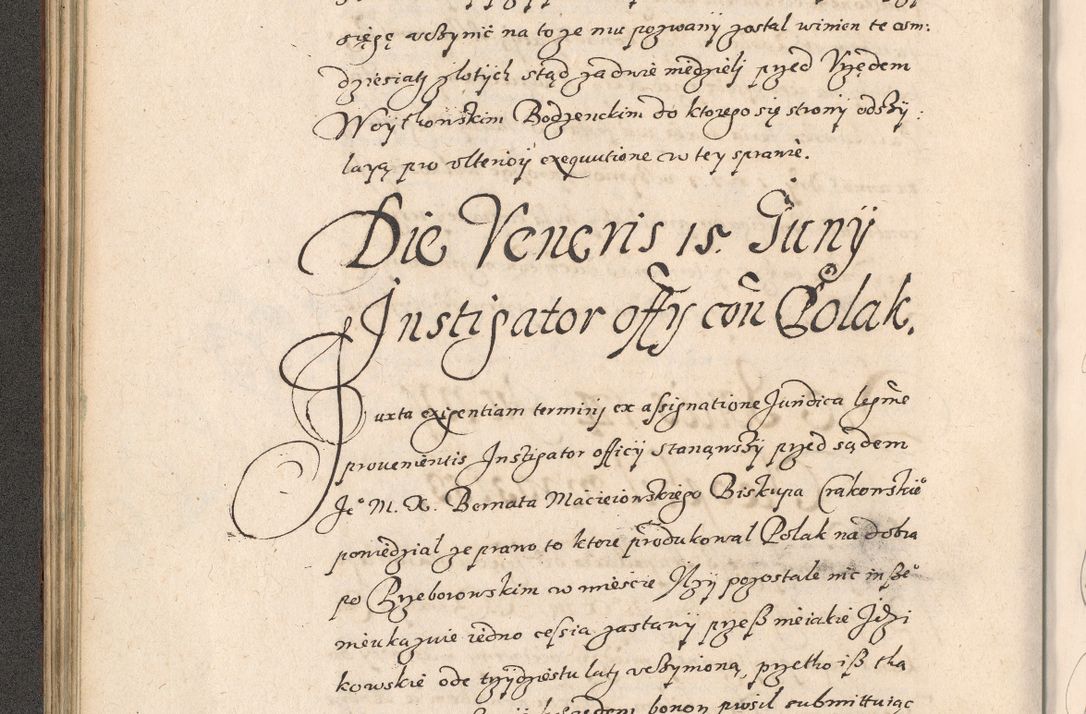 sięgę uczynić na to że mu pozwany został winien te osm:
dziesiąti złotych stąd za dwie niedzieli przed Urzędem
Woytkowskim Bodzenckim do ktorego się strony odszy:
laią pro ulteriori exequutione w tey sprawie.
Die Veneris 15. Junÿ
Instigator offÿ con Polak.
Juxta exigentiam terminj ex assignatione Juridica legme
provenientis Instigator officij stanąwszy przed sądem
Je° M. X. Bernata Macieiowskiego Biskupa Crakowskie°
powiedział ze prawo to ktore produkował Polak na dobra
po Brzeborowskim w mieście Jłży pozostałe nic insze°
nieukazuie iedno cessia zastawy przesz nieiakie Idzi
kowskie ode trzydziestu laty uczynioną, przetho isz tha
bonon prosił submittuiąc